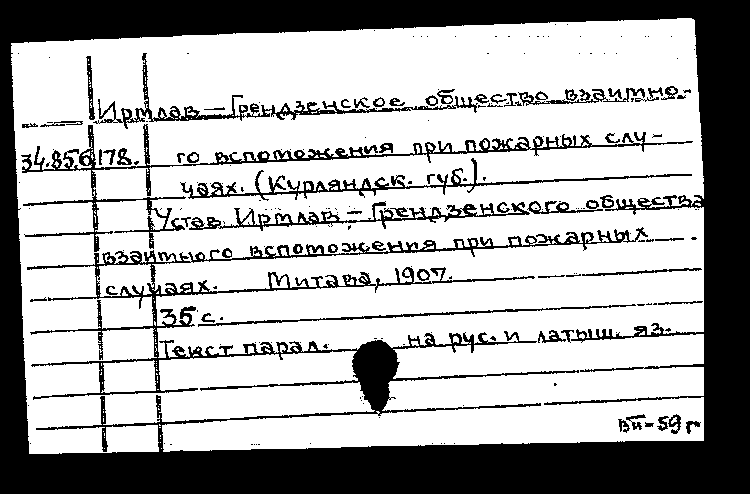 Иртлав – Грендзенское общество взаимно-
34.85.6178. го вспоможения при пожарных слу-
чаях. (Курляндск. губ.).
Устав Иртлав – Грендзенского общества
взаимного вспоможения при пожарных
случаях. Митава, 1907.
35 с.
Текст парал. на рус. и латыш. яз.
59 г